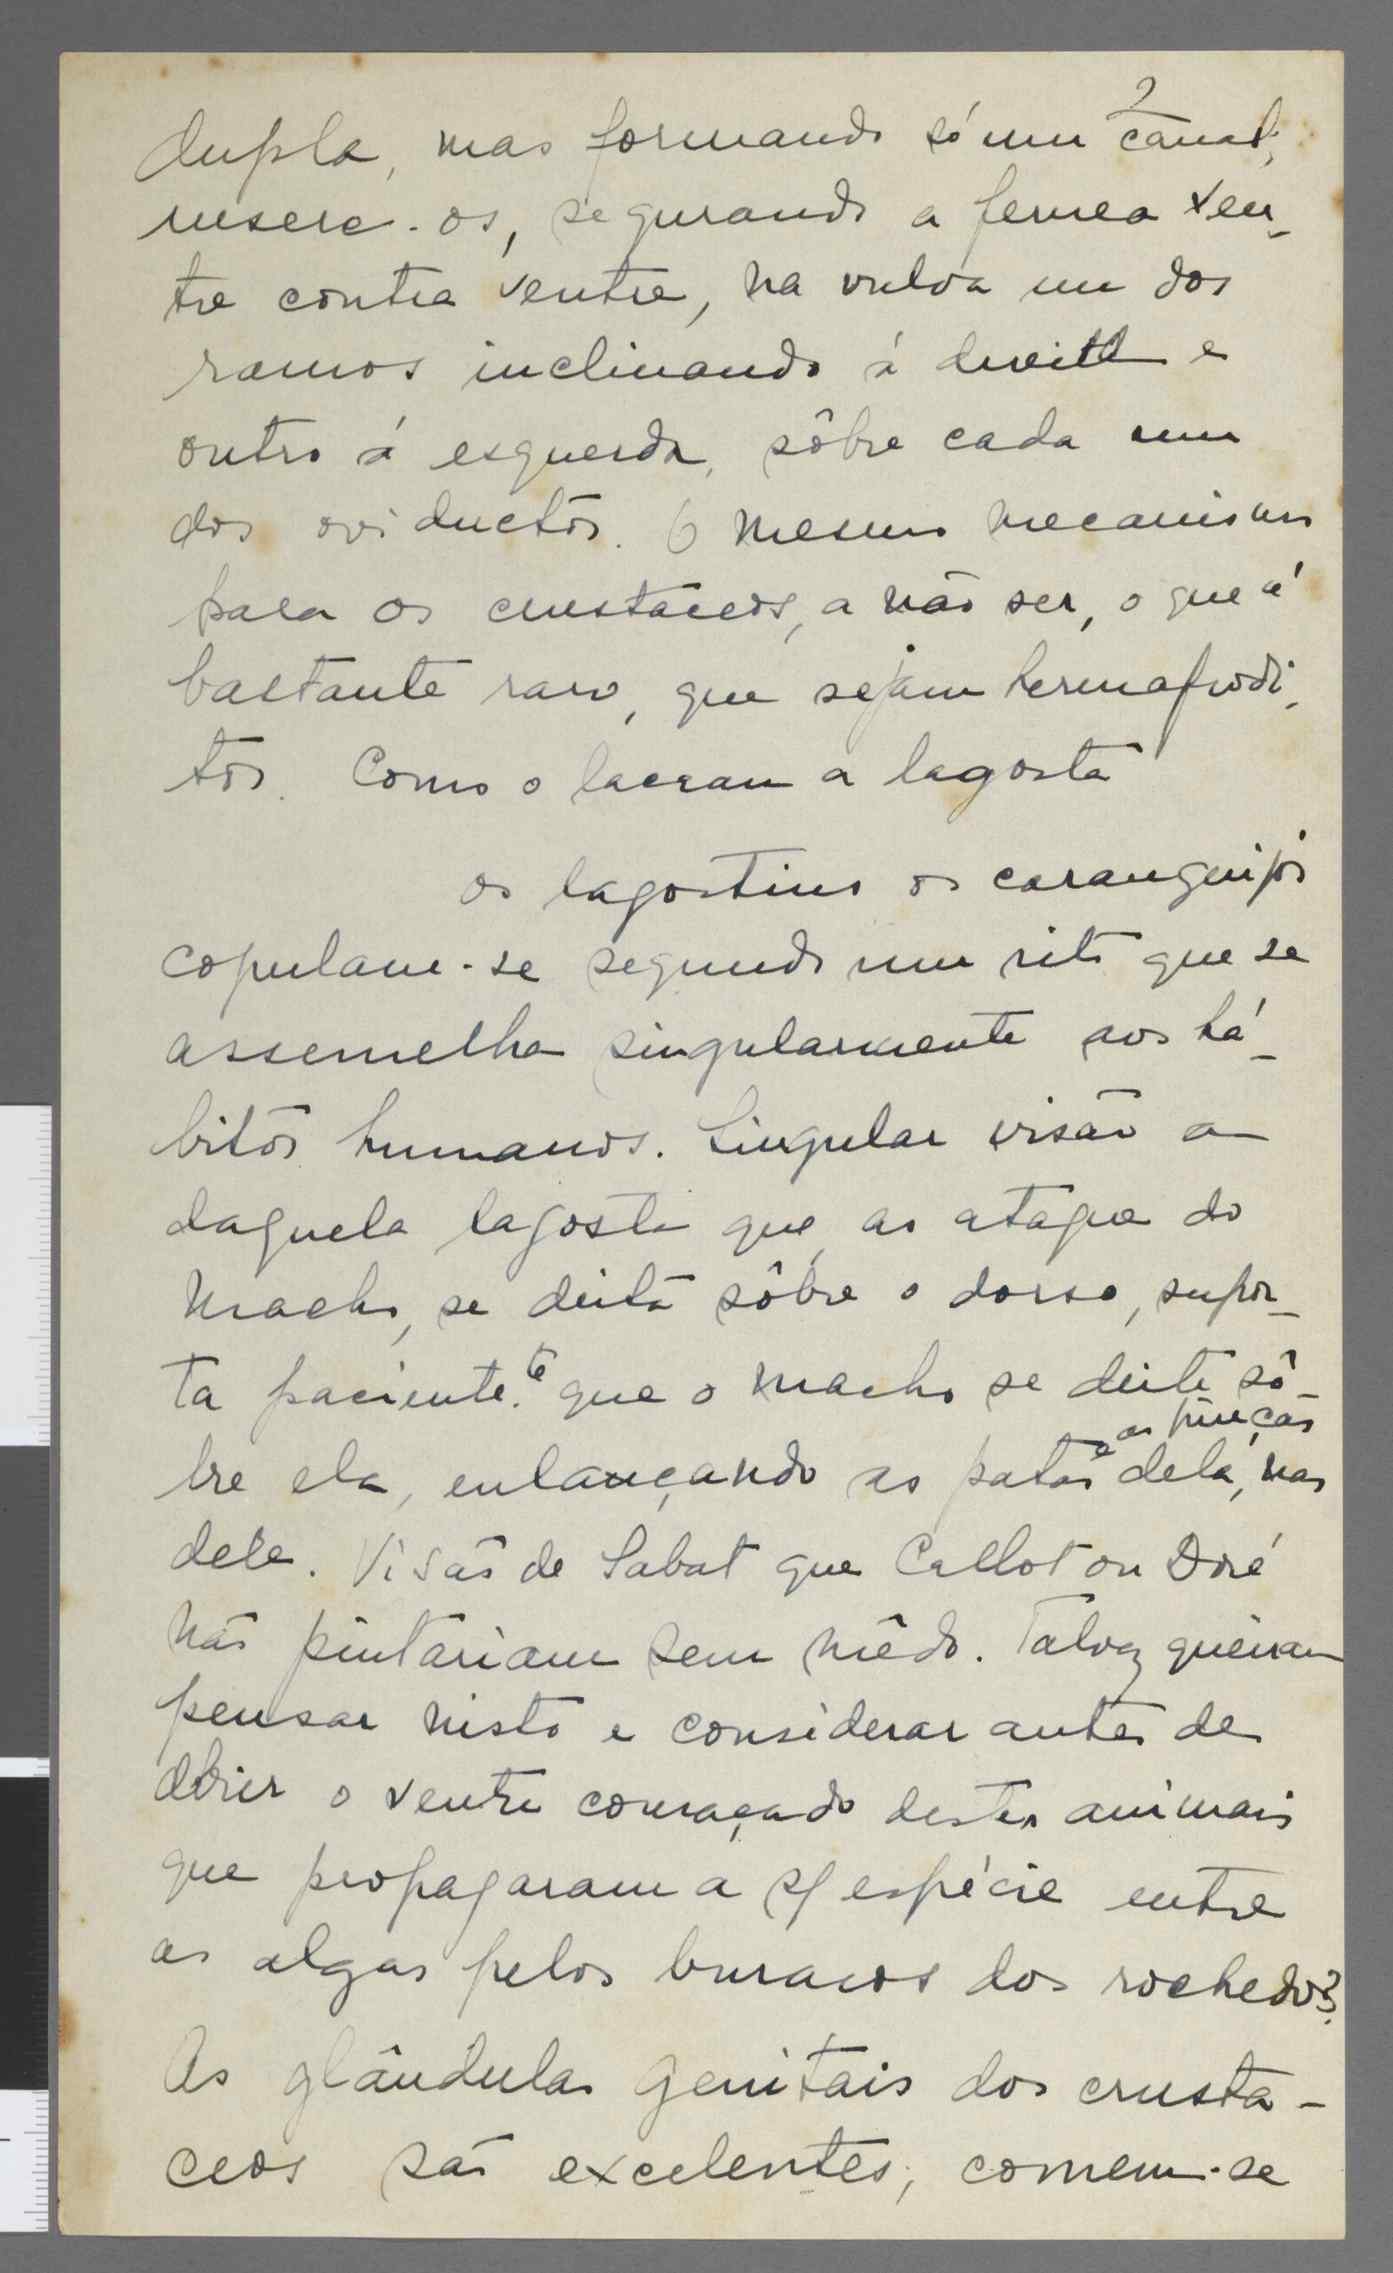 2
dupla, mas formando só um canal,
insere-os, segurando a femea ven-
tre contra ventre, na vulva um dos
ramos inclinando á direita e
outro á esquerda, sôbre cada um
dos oviductos. O mesmo mecanismo
para os crustáceos, a não ser, o que é
bastante raro, que sejam hermafrodi-
tos. Como o lacrau a lagosta
os lagostins os caranguijos
copulam-se segundo um rito que se
assemelha singularmente aos há-
bitos humanos. Singular visão a
daquela lagosta que, ao ataque do
macho, se deita sôbre o dorso, supor-
ta paciente.te que o macho se deite sô-
e as pinças
bre ela, enlançando as patas dela, nas
dele. Visão de Sabat que Callot ou Doré
não pintariam sem mêdo. Talvez queiram
pensar nisto e considerar antes de
abrir o ventre couraçado destes animais
que propagaram a sf espécie entre
as algas pelos buracos dos rochedos?
As glândulas genitais dos crusta-
ceos são excelentes; comem-se